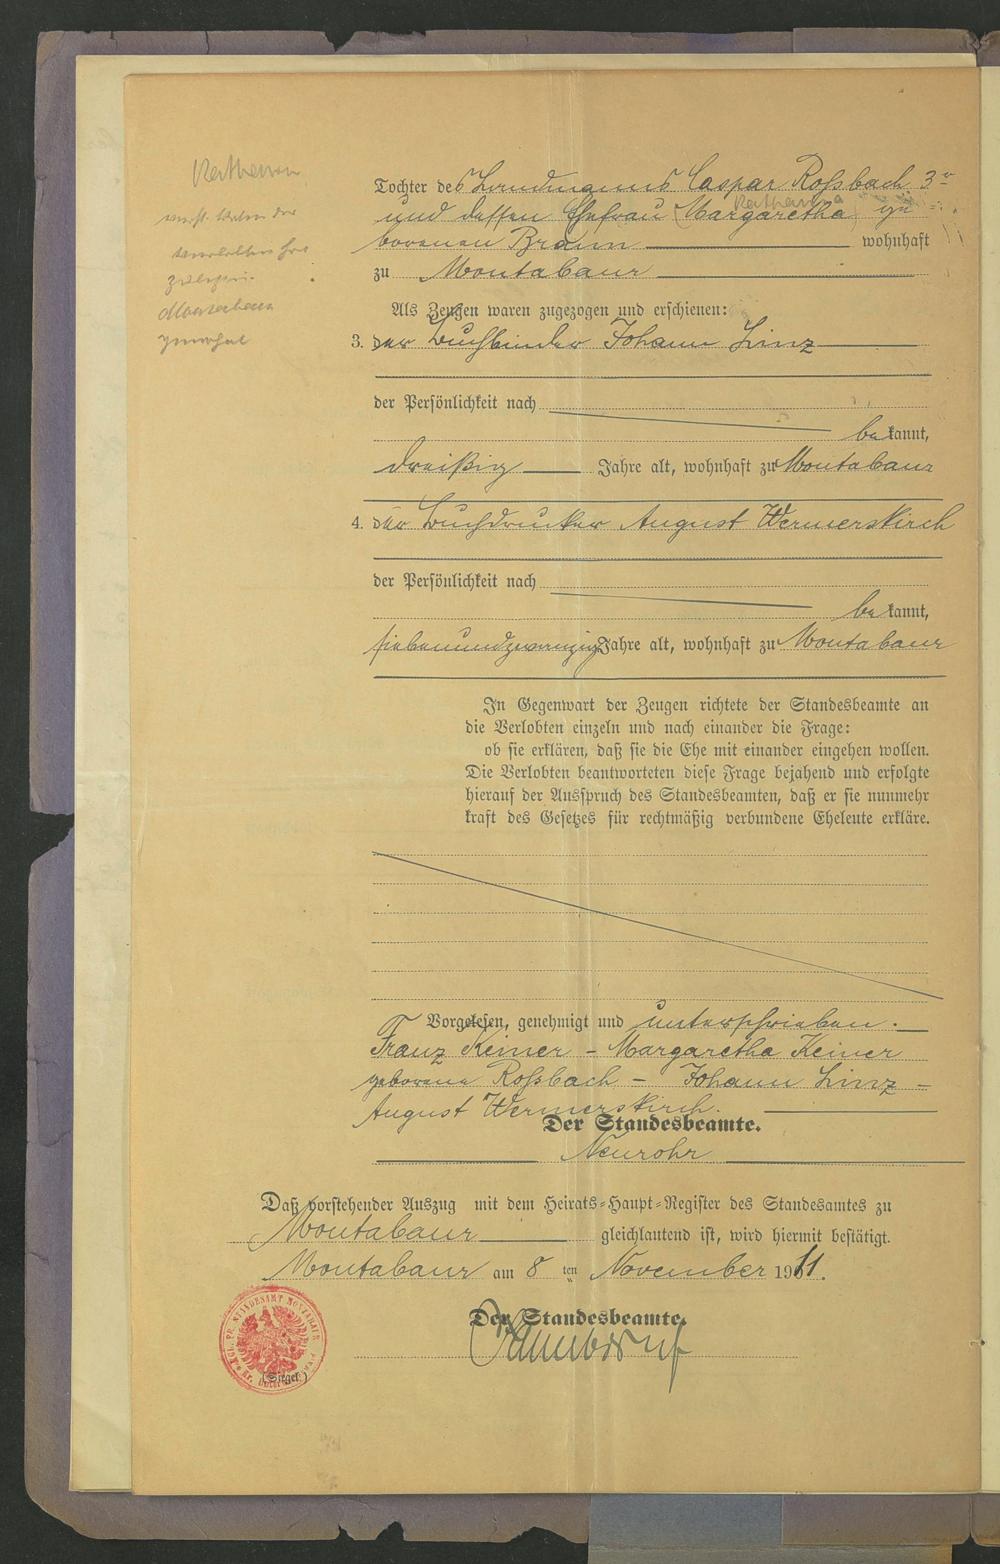 Katharina
Tochter des Landmanns Caspar Roßbach 3r
Katharina
und dessen Ehefrau (Margaretha) ge-
borenen Braun wohnhaft
zu Montabaur
Als Zeugen waren zugezogen und erschienen:
3. der Buchbinder Johann Linz
der Persönlichkeit nach
bekannt,
dreißig Jahre alt, wohnhaft zu Montabaur
4. der Buchdrucker August Wermerskirch
der Persönlichkeit nach
bekannt,
siebenundzwanzig Jahre alt, wohnhaft zu Montabaur
In Gegenwart der Zeugen richtete der Standesbeamte an
die Verlobten einzeln und nach einander die Frage:
ob sie erklären, daß sie die Ehe mit einander eingehen wollen.
Die Verlobten beantworteten diese Frage bejahend und erfolgte
hierauf der Ausspruch des Standesbeamten, daß er sie nunmehr
kraft des Gesetzes für rechtmäßig verbundene Eheleute erkläre.
Vorgelesen, genehmigt und unterschrieben.
Franz Keiner - Margaretha Keiner
geborene Roßbach - Johann Linz -
August Wermerskirch.
Der Standesbeamte.
Neurohr
Daß vorstehender Auszug mit dem Heirats-Haupt-Register des Standesamtes zu
Montabaur gleichlautend ist, wird hiermit bestätigt.
Montabaur am 8ten November 1911.
Der Standesbeamte.
KGL. PR. STANDESAMT MONTABAUR
(Siegel.)